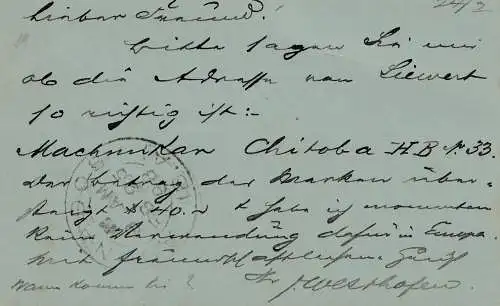 lieber Freund!
24/2
Bitte sagen Sie mir
ob die Adresse von Siewert
so richtig ist:-
Machmudkar Chitoba H.B. N. 33.
Der Betrag der Marken über-
steigt $ 40.- & habe ich momentan
keine Verwendung dafür in Europa.
Mit freundschaftlichem Gruß
Ihr J. Westhofen
Wann kommen Sie?